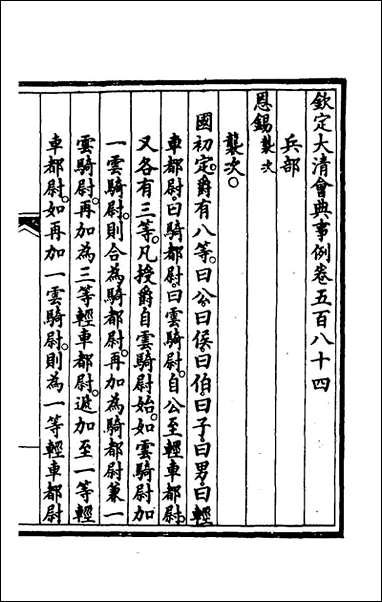 欽定大清會典事例卷五百八十四
兵部
恩錫襲次
襲次。
國初定。爵有八等。曰公。曰侯。曰伯。曰子。曰男。曰輕
車都尉。曰騎都尉。曰雲騎尉。自公至輕車都尉。
又各有三等。凡授爵自雲騎尉始。如雲騎尉加
一雲騎尉。則合為騎都尉。再加為騎都尉兼一
雲騎尉。再加為三等輕車都尉。遞加至一等輕
車都尉。如再加一雲騎尉。則為一等輕車都尉